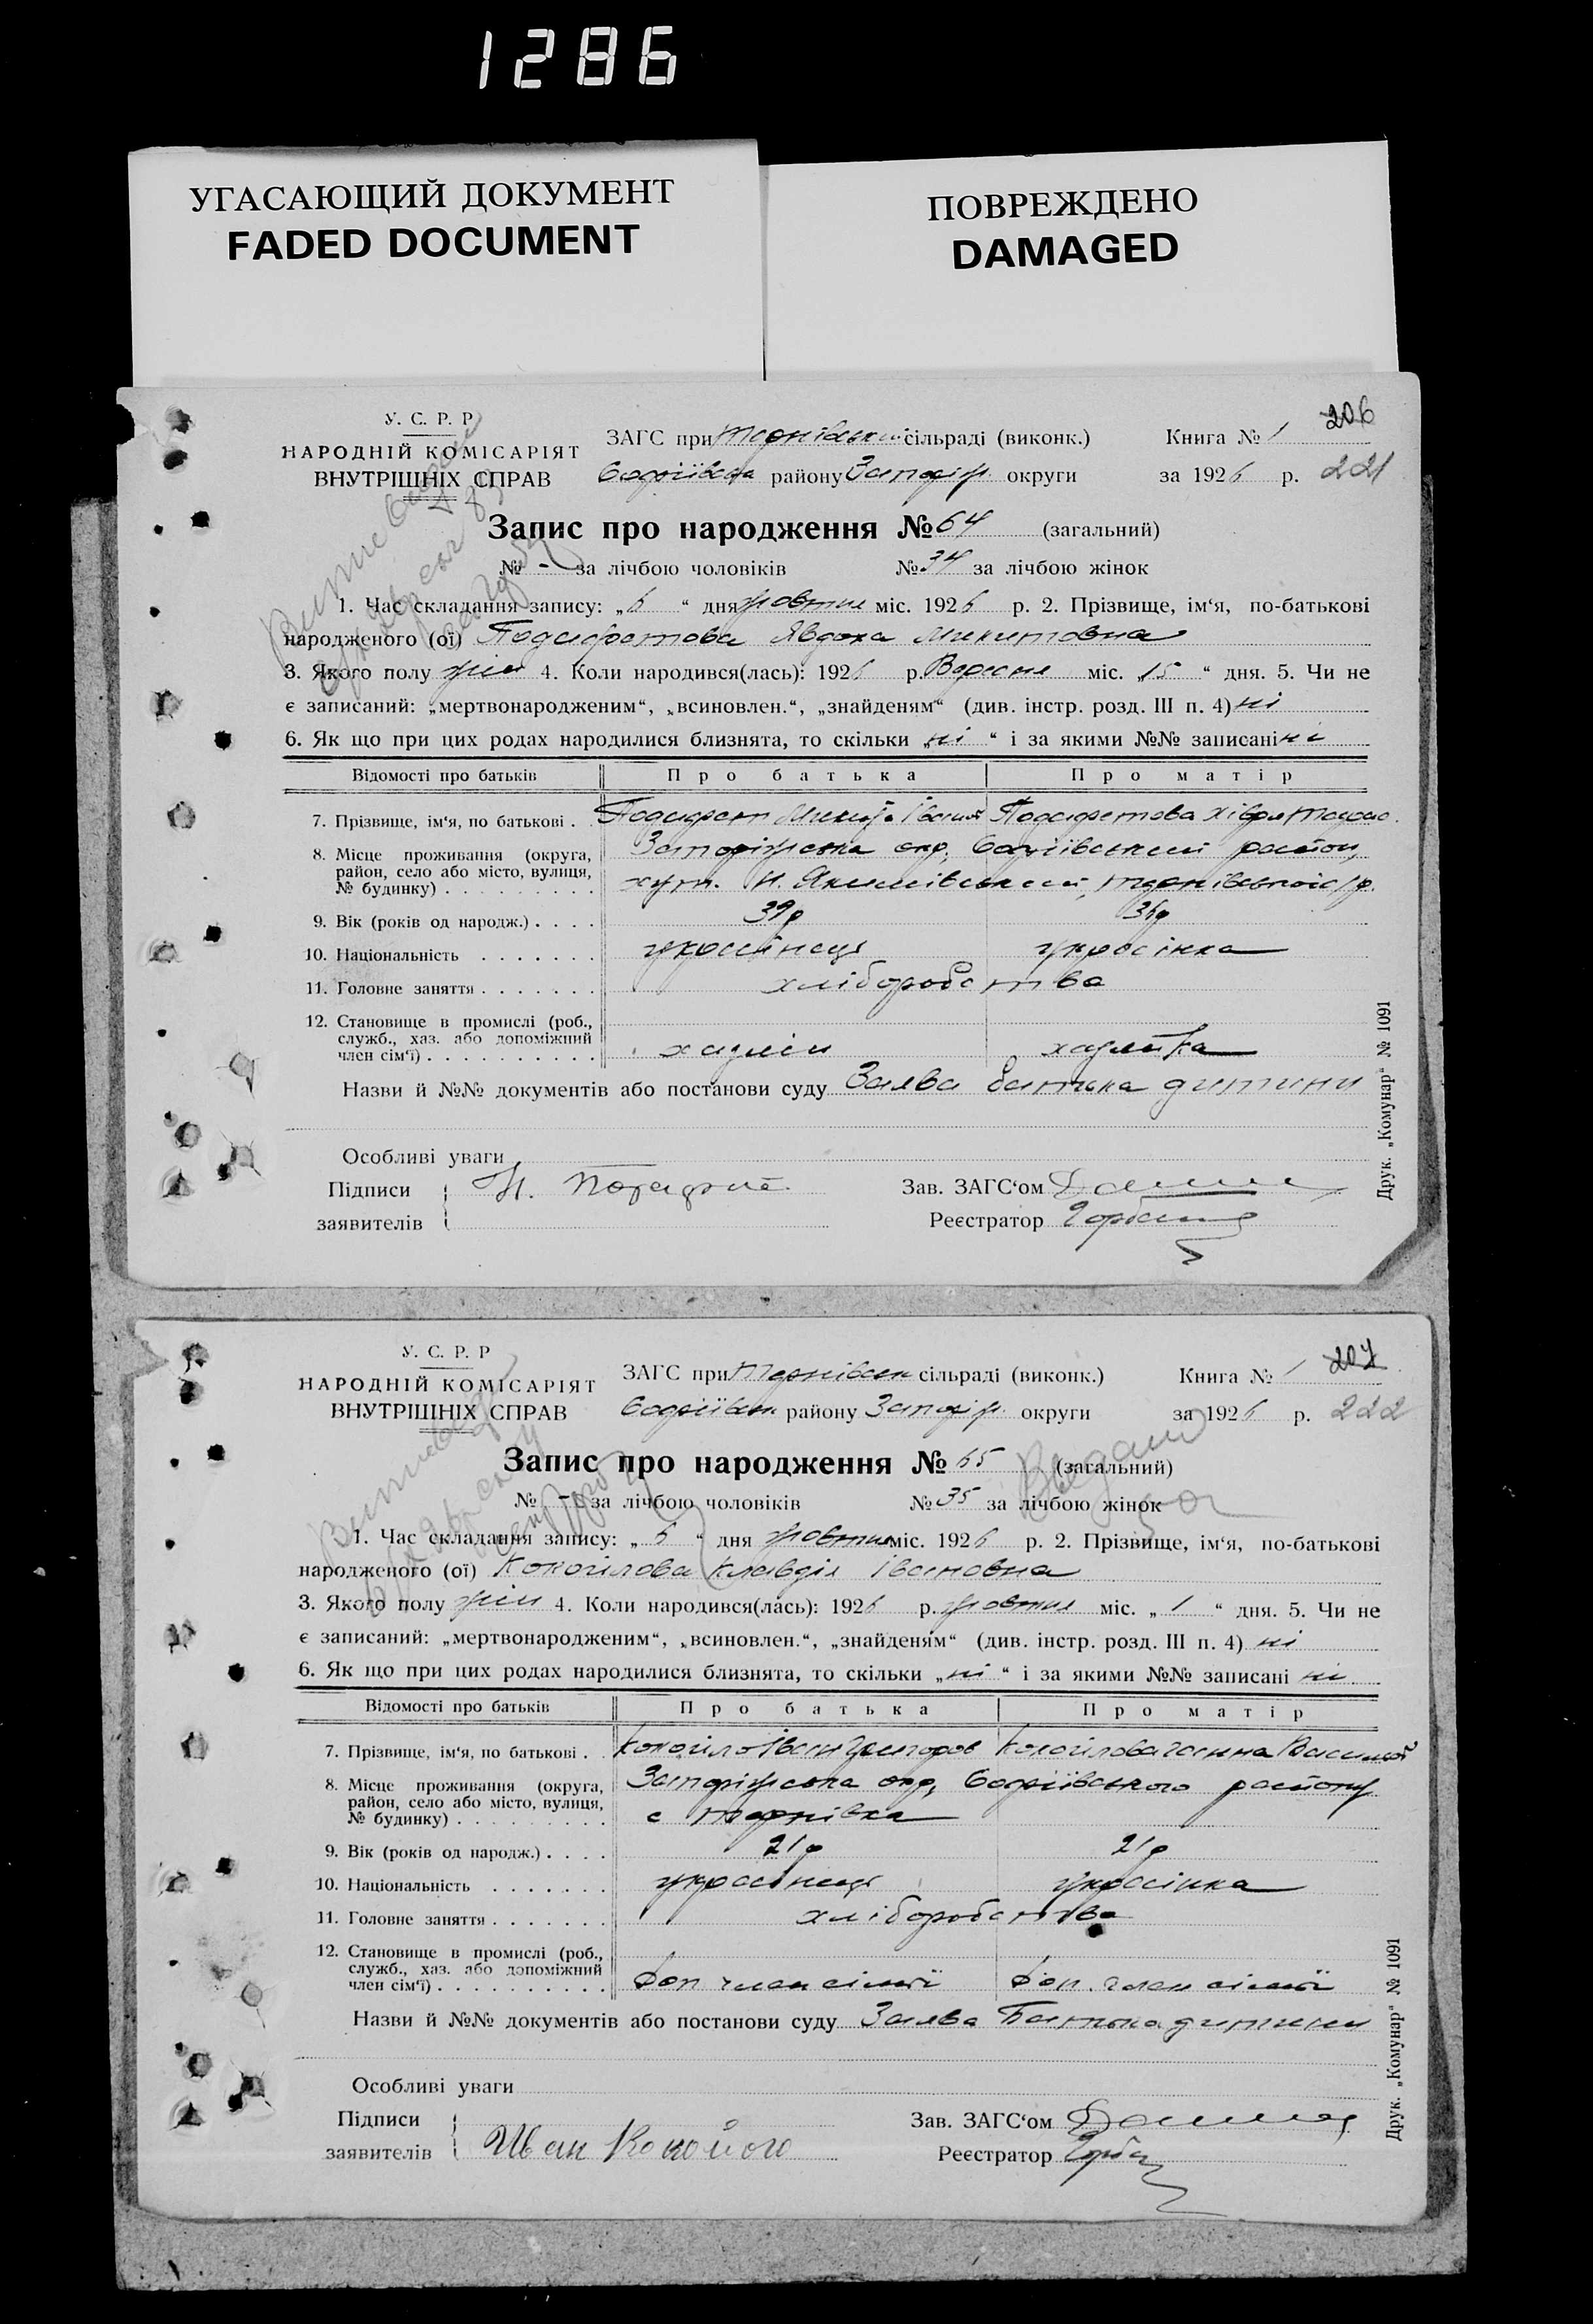 1286
УГАСАЮЩИЙ ДОКУМЕНТ
FADED DOCUMENT
ПОВРЕЖДЕНО
DAMAGED
206
У. С. Р. Р
НАРОДНІЙ КОМІСАРІЯТ
ВНУТРІШНІХ СПРАВ
ЗАГС при Тернівській сільраді (виконк.) Книга № 1
району Запоріж. округи за 1926 р. 221
Запис про народження № 64 (загальний)
№ - за лічбою чоловіків № 34 за лічбою жінок
1. Час складання запису: „6“ дня жовтня міс. 1926 р. 2. Прізвище, ім‘я, по-батькові
народженого (ої) Явдоха Микитовна
3. Якого полу жін 4. Коли народився(лась): 1926 р. Вересня міс. „15“ дня. 5. Чи не
є записаний: „мертвонародженим“, „всиновлен.“, „знайденям“ (див. інстр. розд. III п. 4) ні
6. Як що при цих родах народилися близнята, то скільки „ні“ і за якими №№ записані ні
Відомості про батьків Про батька Про матір
7. Прізвище, ім‘я, по батькові . Микита Іванов Хівря
8. Місце проживання (округа, район, село або місто, вулиця, № будинку) . . . . . . . . . Запоріжська окр, район,
хут. Н.
9. Вік (років од народж.) . . . . 39р 36р
10. Національність . . . . . . . українець українка
11. Головне заняття . . . . . . . хліборобства
12. Становище в промислі (роб., служб., хаз. або допоміжний член сім‘ї) . . . . . . . . . . хазяїн хазяйка
Назви й №№ документів або постанови суду Заява батька дитини
Особливі уваги
Підписи Зав. ЗАГС‘ом
заявителів Реєстратор
Друк. „Комунар“ № 1091
207
У. С. Р. Р
НАРОДНІЙ КОМІСАРІЯТ
ВНУТРІШНІХ СПРАВ
ЗАГС при Тернівськ сільраді (виконк.) Книга № 1
району Запоріж. округи за 1926 р. 222
Запис про народження № 65 (загальний)
Выдано
№ - за лічбою чоловіків № 35 за лічбою жінок
1. Час складання запису: „6“ дня жовтня міс. 1926 р. 2. Прізвище, ім‘я, по-батькові
народженого (ої) Конойлова Клавдія Івановна
3. Якого полу жін 4. Коли народився(лась): 1926 р. жовтня міс. „1“ дня. 5. Чи не
є записаний: „мертвонародженим“, „всиновлен.“, „знайденям“ (див. інстр. розд. III п. 4) ні
6. Як що при цих родах народилися близнята, то скільки „ні“ і за якими №№ записані ні
Відомості про батьків Про батька Про матір
7. Прізвище, ім‘я, по батькові . Конойло Іван Григоров Конойлова
8. Місце проживання (округа, район, село або місто, вулиця, № будинку) . . . . . . . . . Запоріжська окр, району
с Тернівка
9. Вік (років од народж.) . . . . 21р 21р
10. Національність . . . . . . . українець українка
11. Головне заняття . . . . . . . хліборобства
12. Становище в промислі (роб., служб., хаз. або допоміжний член сім‘ї) . . . . . . . . . . Доп. член сімьї Доп. член сімьї
Назви й №№ документів або постанови суду Заява Батька дитини
Особливі уваги
Підписи Зав. ЗАГС‘ом
заявителів Иван Реєстратор
Друк. „Комунар“ № 1091